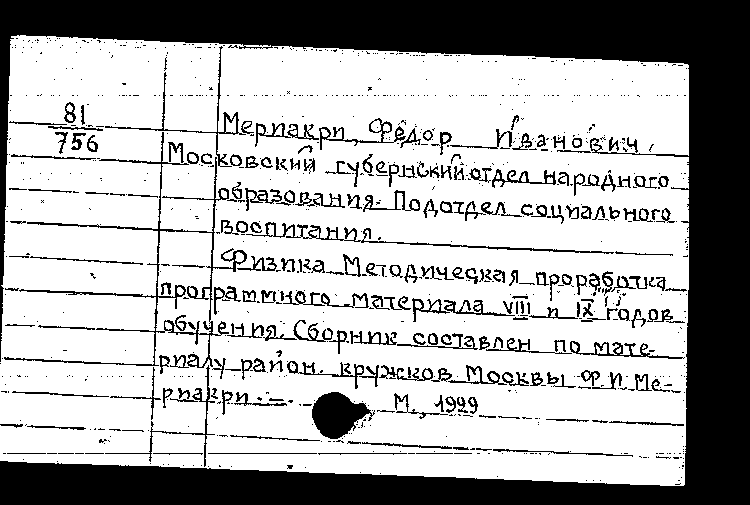 81
756
Мерпакрп, Фёдор Иванович.
Московский губернский отдел народного
образования. Подотдел социального
воспитания.
Физика Методическая проработка
программного материала VIII и IX годов
обучения. Сборник составлен по мате-
риалу район. кружков Москвы Ф И Ме-
рпакрп. —. М., 1929